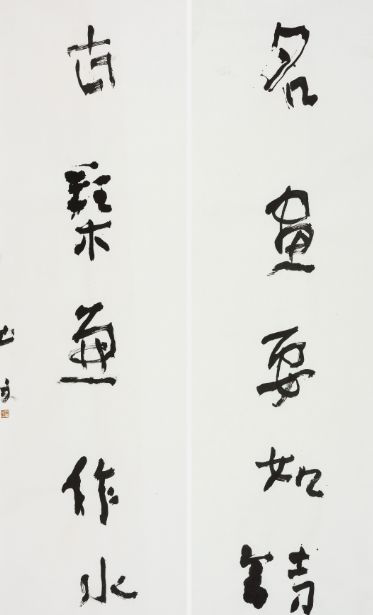 名畫要如詩
古琹兼作水